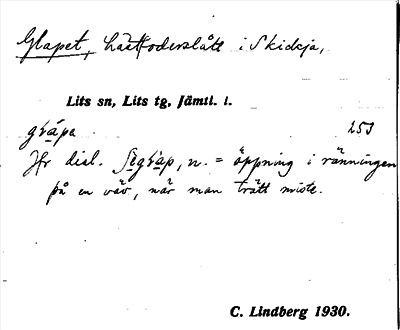 Glapet, hårfoderslått i Skickja,
Lits sn, Lits tg, Jämtl. l.
gråpa 253
Jfr dial. n. = öppning i ränningen
på en väv, när man trätt miste.
C. Lindberg 1930.